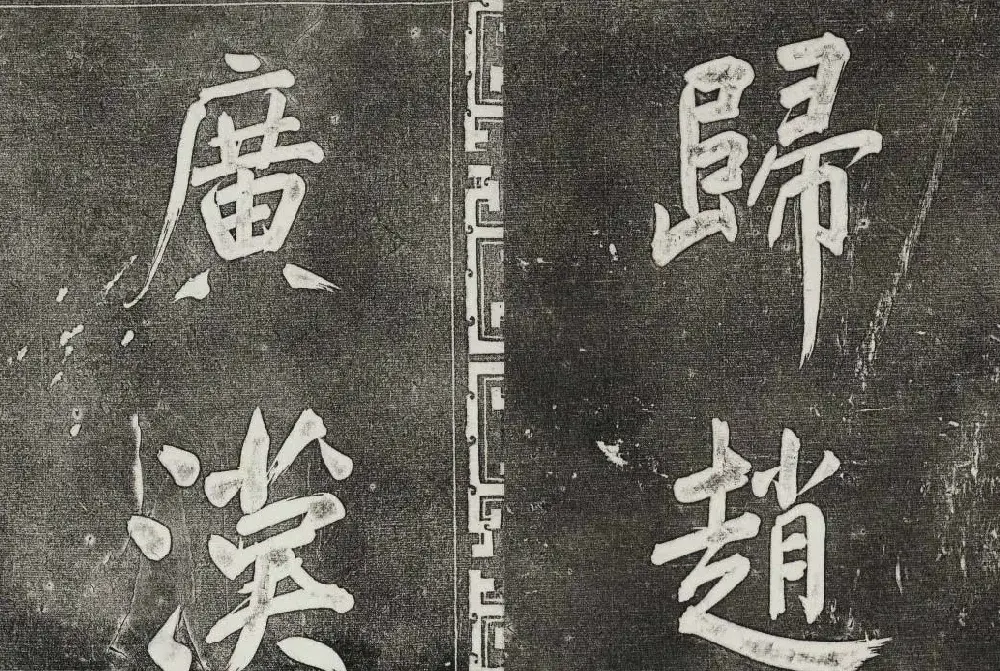 歸趙
廣漢